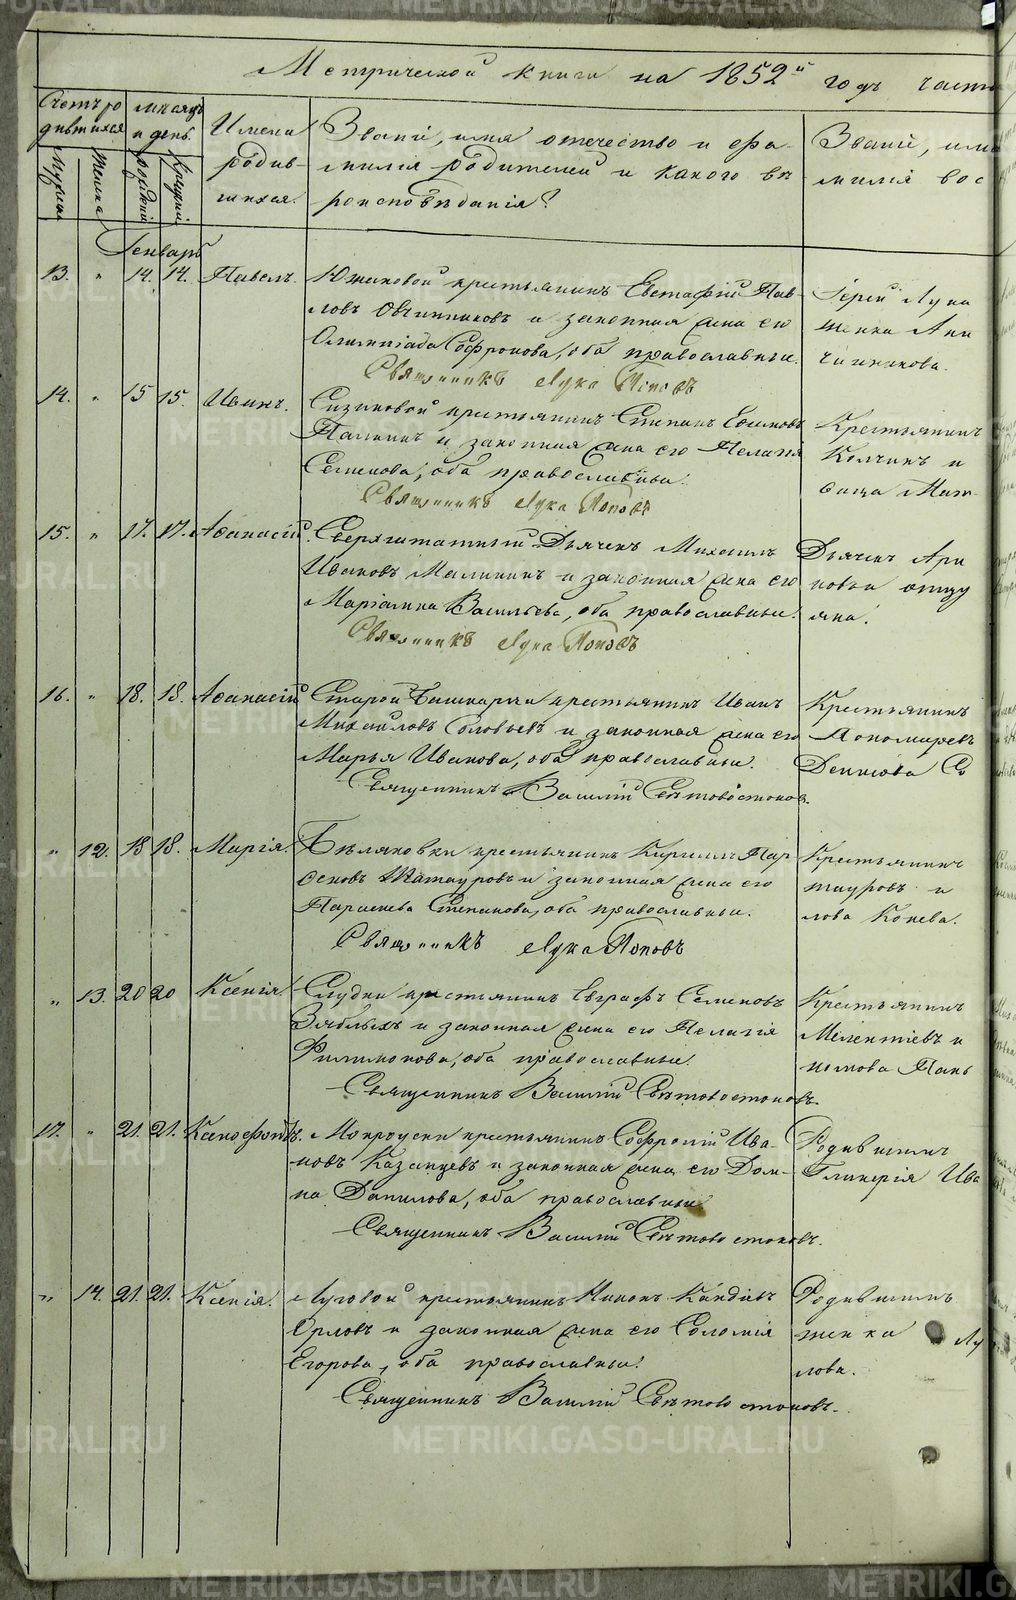 Метрической книги на 1852й годъ часть
Счетъ ро
дившихся
Мужеска
Женска
месяцъ
и день.
Рожденія
Крещенія
Имена
родив-
шихся.
Званіе, имя отечество и фа-
милія родителей и какого вѣ
роисповѣданія?
Званіе, имя
милія вос
Генварь
13. " 14. 14. Павелъ. Южаковой крестьянинъ Евстафій Пав-
ловъ Овчинниковъ и законная жена его
Олимпіада Софронова, оба православные.
Священникъ Лука Поповъ
Іерей Лука
женка Анн
чинникова.
14. " 15 15. Иванъ. Сизиковой крестьянинъ Степанъ Ефимовъ
Палкинъ и законная жена его Пелагія
Семенова, оба православные.
Священникъ Лука Поповъ
Крестьянинъ
Колчинъ и
15. " 17. 17. Аѳанасій. Сверхштатный Дьячекъ Михаилъ
Ивановъ Малининъ и законная жена его
Маріамна Васильева, оба православные.
Священникъ Лука Поповъ
Дьячекъ
16. " 18. 18. Аѳанасій Старой Башкарки крестьянинъ Иванъ
Михайловъ Соловьевъ и законная жена его
Марья Иванова, оба православные.
Священникъ Василій Свѣтовостоковъ.
Крестьянинъ
Пономаревъ
Денисова
" 12. 18 18. Марія. Бѣляковки крестьянинъ Кирилъ Пар-
ѳеновъ Шатауровъ и законная жена его
Параскева Степанова, оба православные.
Священникъ Лука Поповъ
Крестьянинъ
тауровъ и
лова Конева.
" 13. 20 20 Ксенія. Слудки крестьянинъ Евграфъ Семеновъ
Зяблыхъ и законная жена его Пелагія
Филимонова, оба православные.
Священникъ Василій Свѣтовостоковъ.
Крестьянинъ
Мелентіевъ и
17. " 21. 21. Ксенофонтъ. Мокроуски крестьянинъ Софроній Ива-
новъ Казанцевъ и законная жена его Дом-
на Данилова, оба православные
Священникъ Василій Свѣтовостоковъ.
Родившимъ
Гликерія Ива
" 14. 21. 21. Ксенія. Луговой крестьянинъ Никонъ
Орловъ и законная жена его Соломія
Егорова, оба православные.
Священникъ Василій Свѣтовостоковъ.
Родившимъ
женка Лу
лова.
METRIKI.GASO-URAL.RU